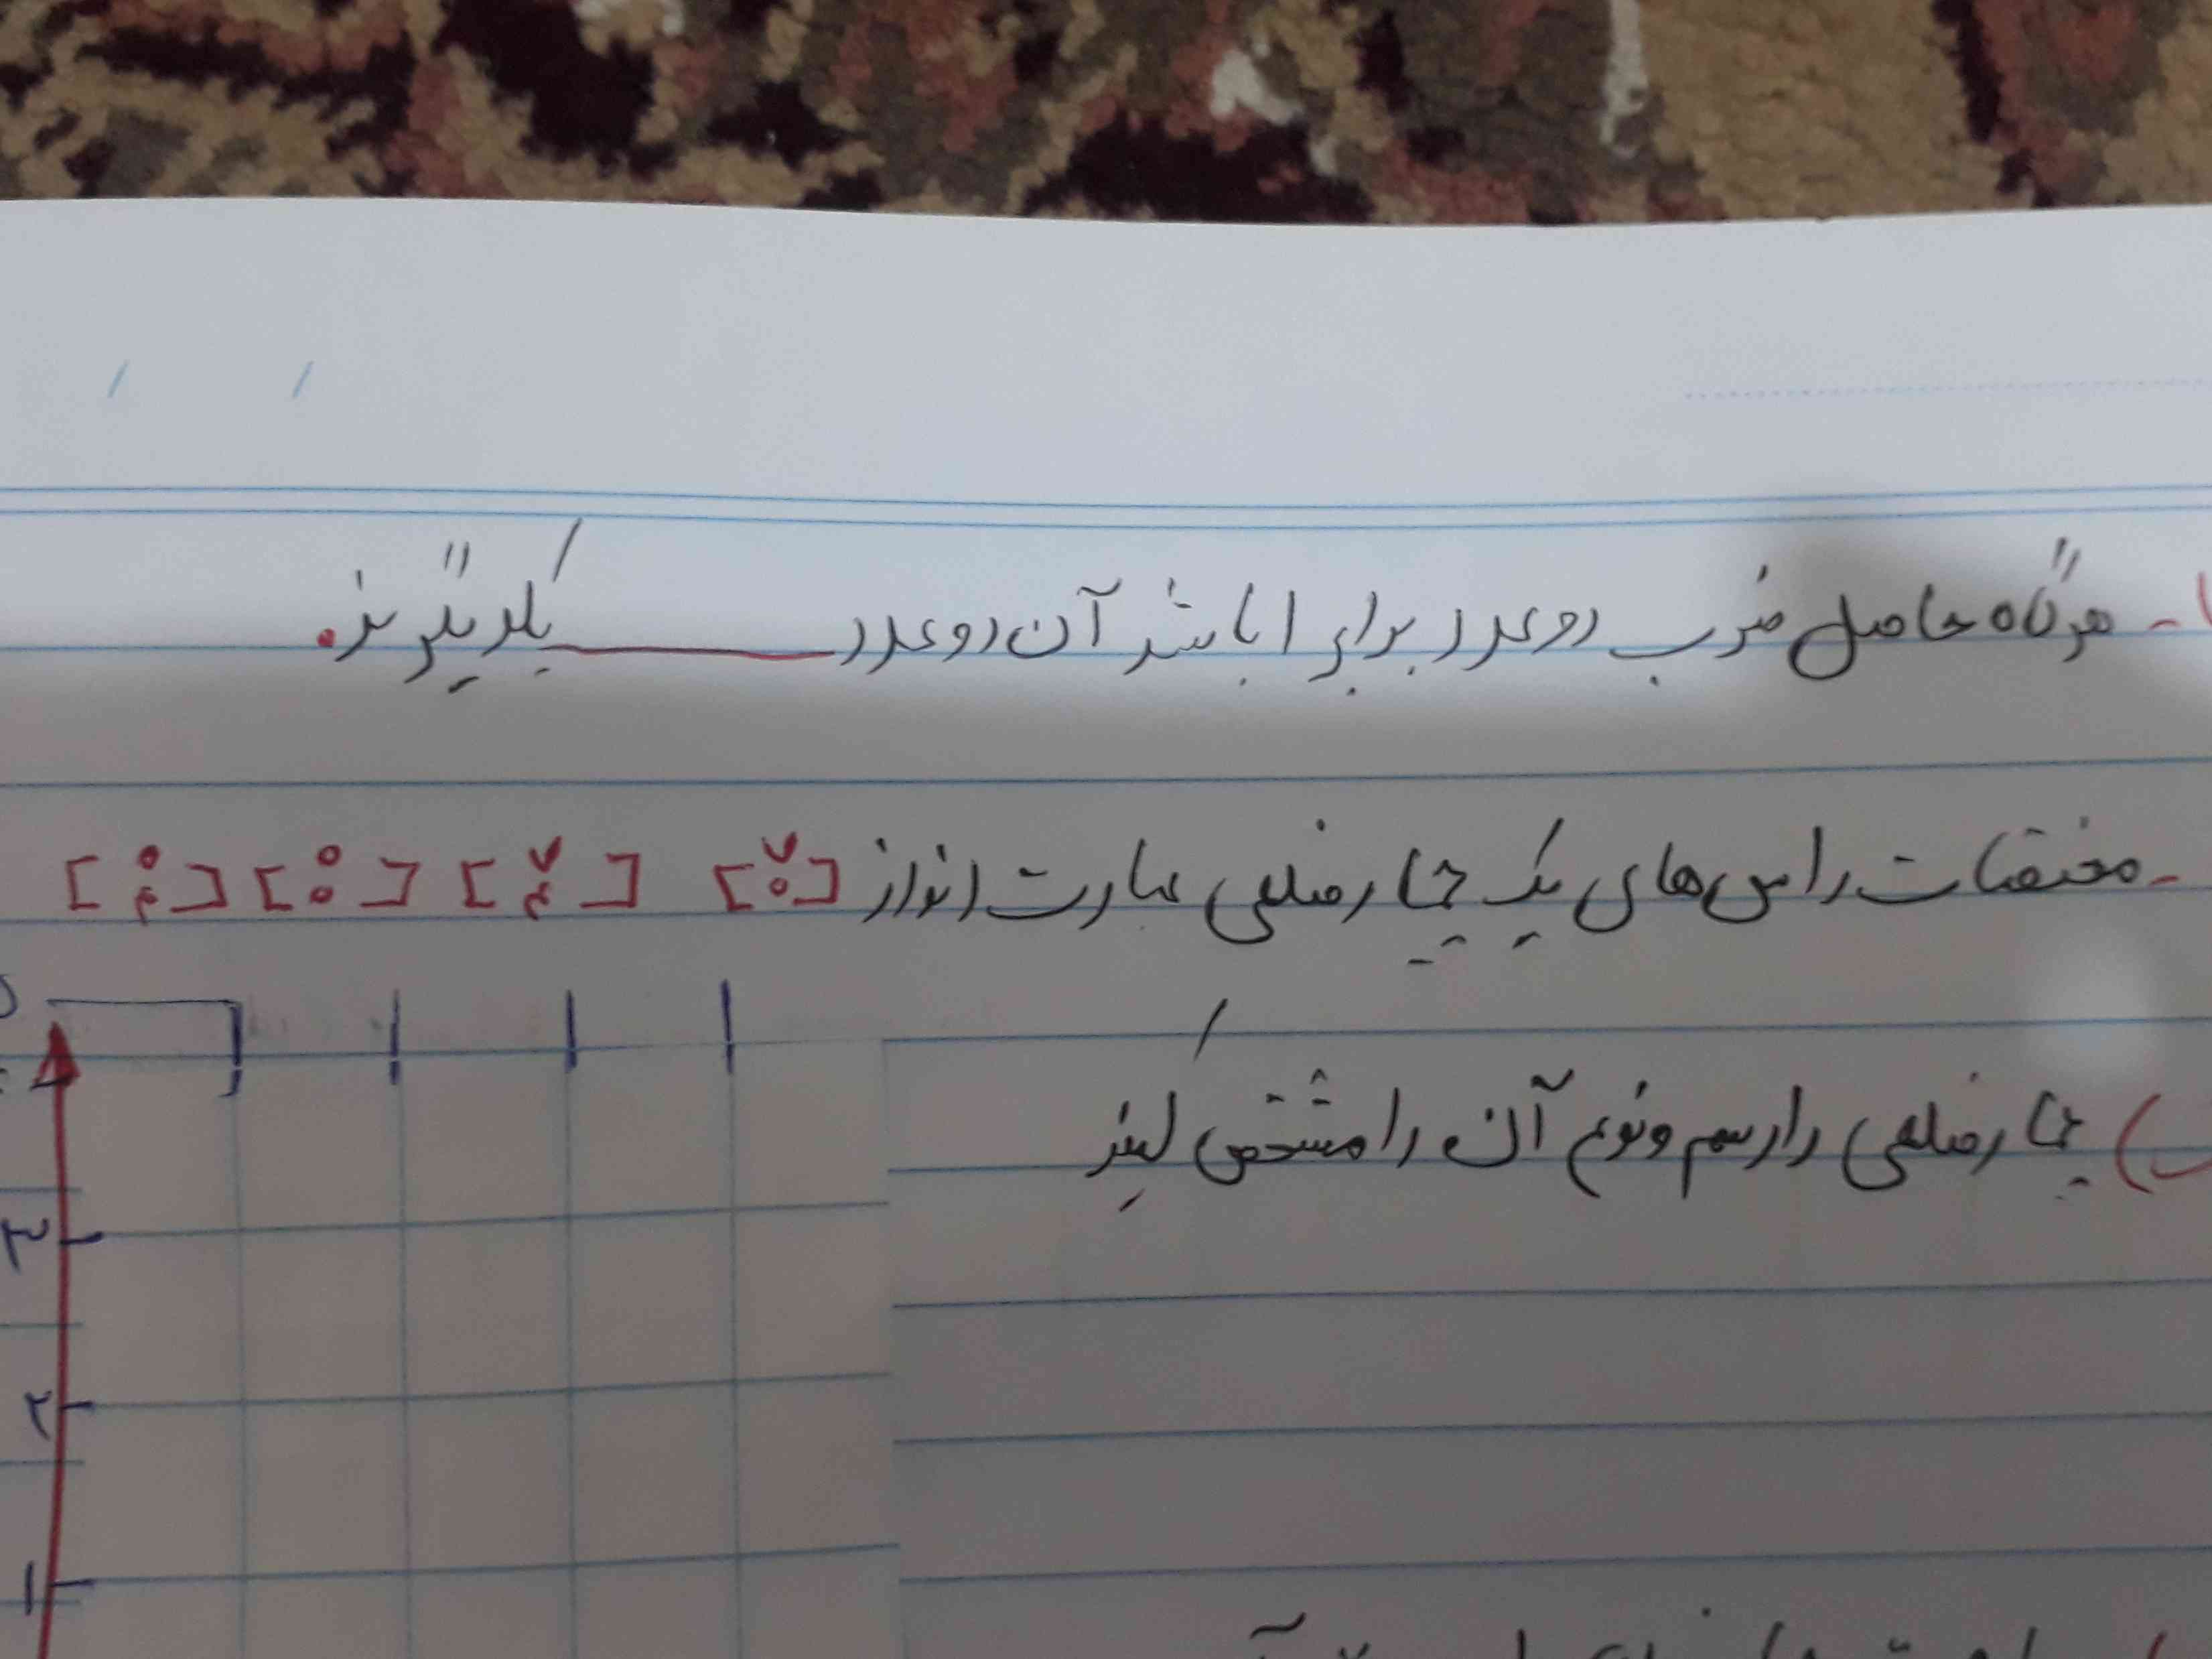 ۱- هرگاه حاصل ضرب دو عدد برابر ۱ باشد آن دو عدد ــــــ یکدیگرند.
- مختصات راس های یک چهارضلعی عبارت اند از [۷ ۰] [۷ ۴] [۰ ۰] [۰ ۴]
چهارضلعی را رسم و نوع آن را مشخص کنید
۳
۲
۱